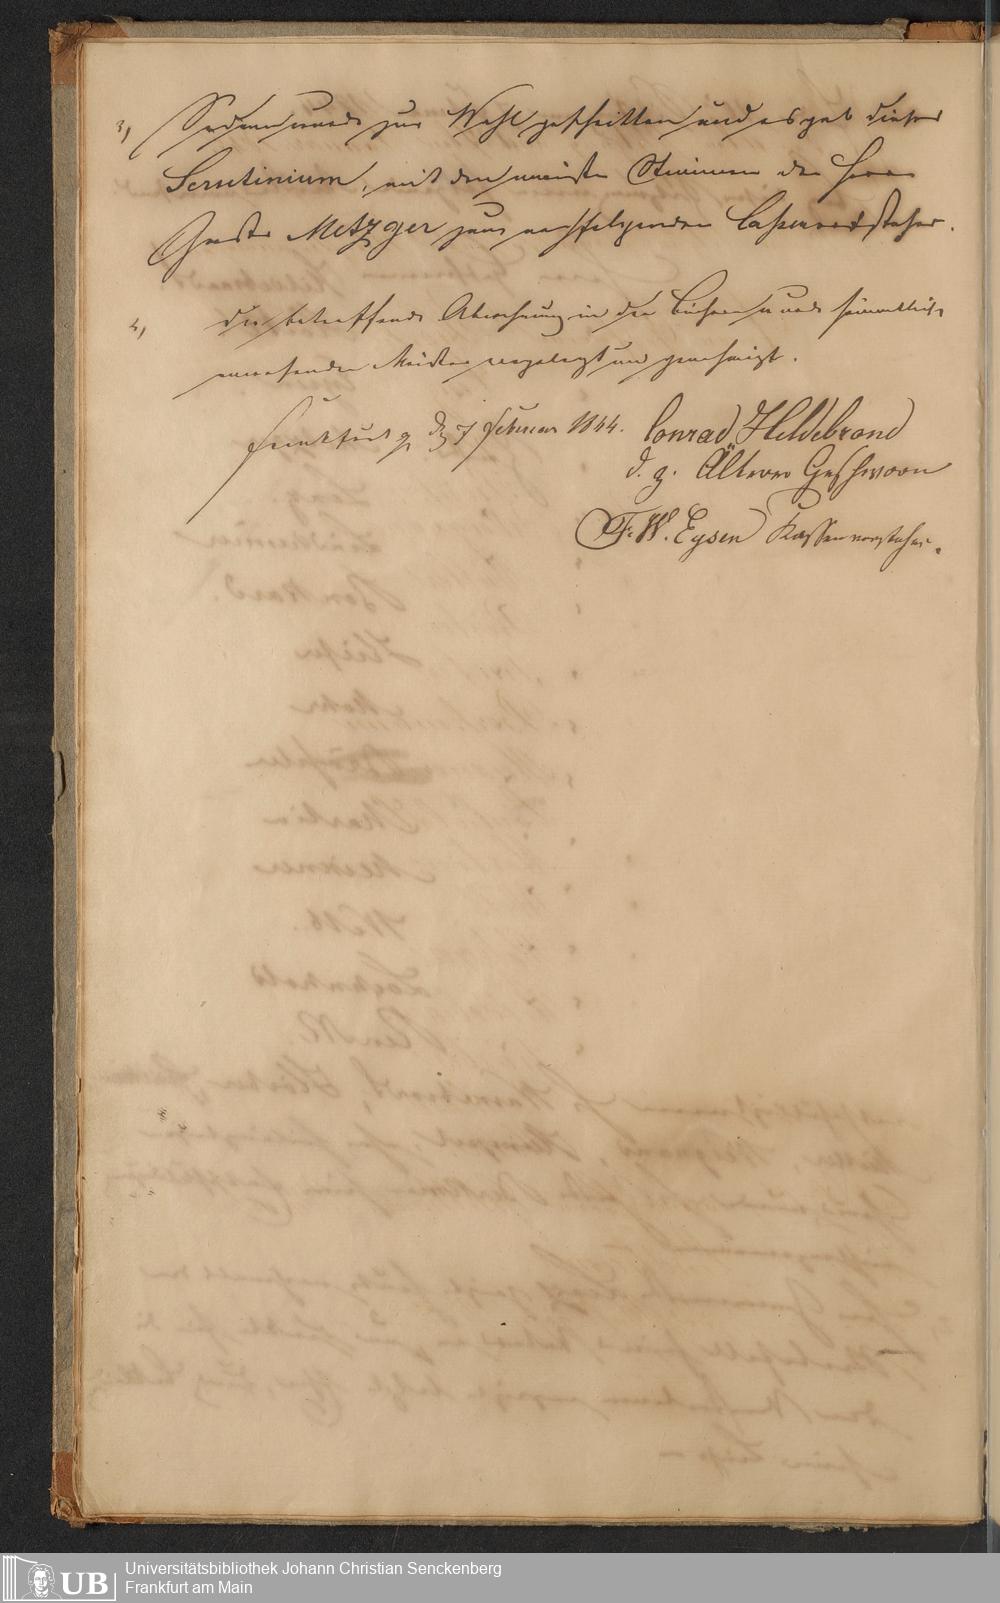 3, Sodann wurde zur Wahl geschritten und es gab dieses
Scrutinium, mit den meisten Stimmen den Herrn
Metzger zum nachfolgenden Cassenvorsteher.
4, die betreffende Abrechnung in den Büchern wurde sämmtlich
anwesenden Meister vorgelegt und genehmigt.
Frankfurt den 7 Februar 1844. Conrad Hildebrand
d. z. Älterer Geschworn
F. W. Eysen Kassenvorsteher.
UB Universitätsbibliothek Johann Christian Senckenberg
Frankfurt am Main